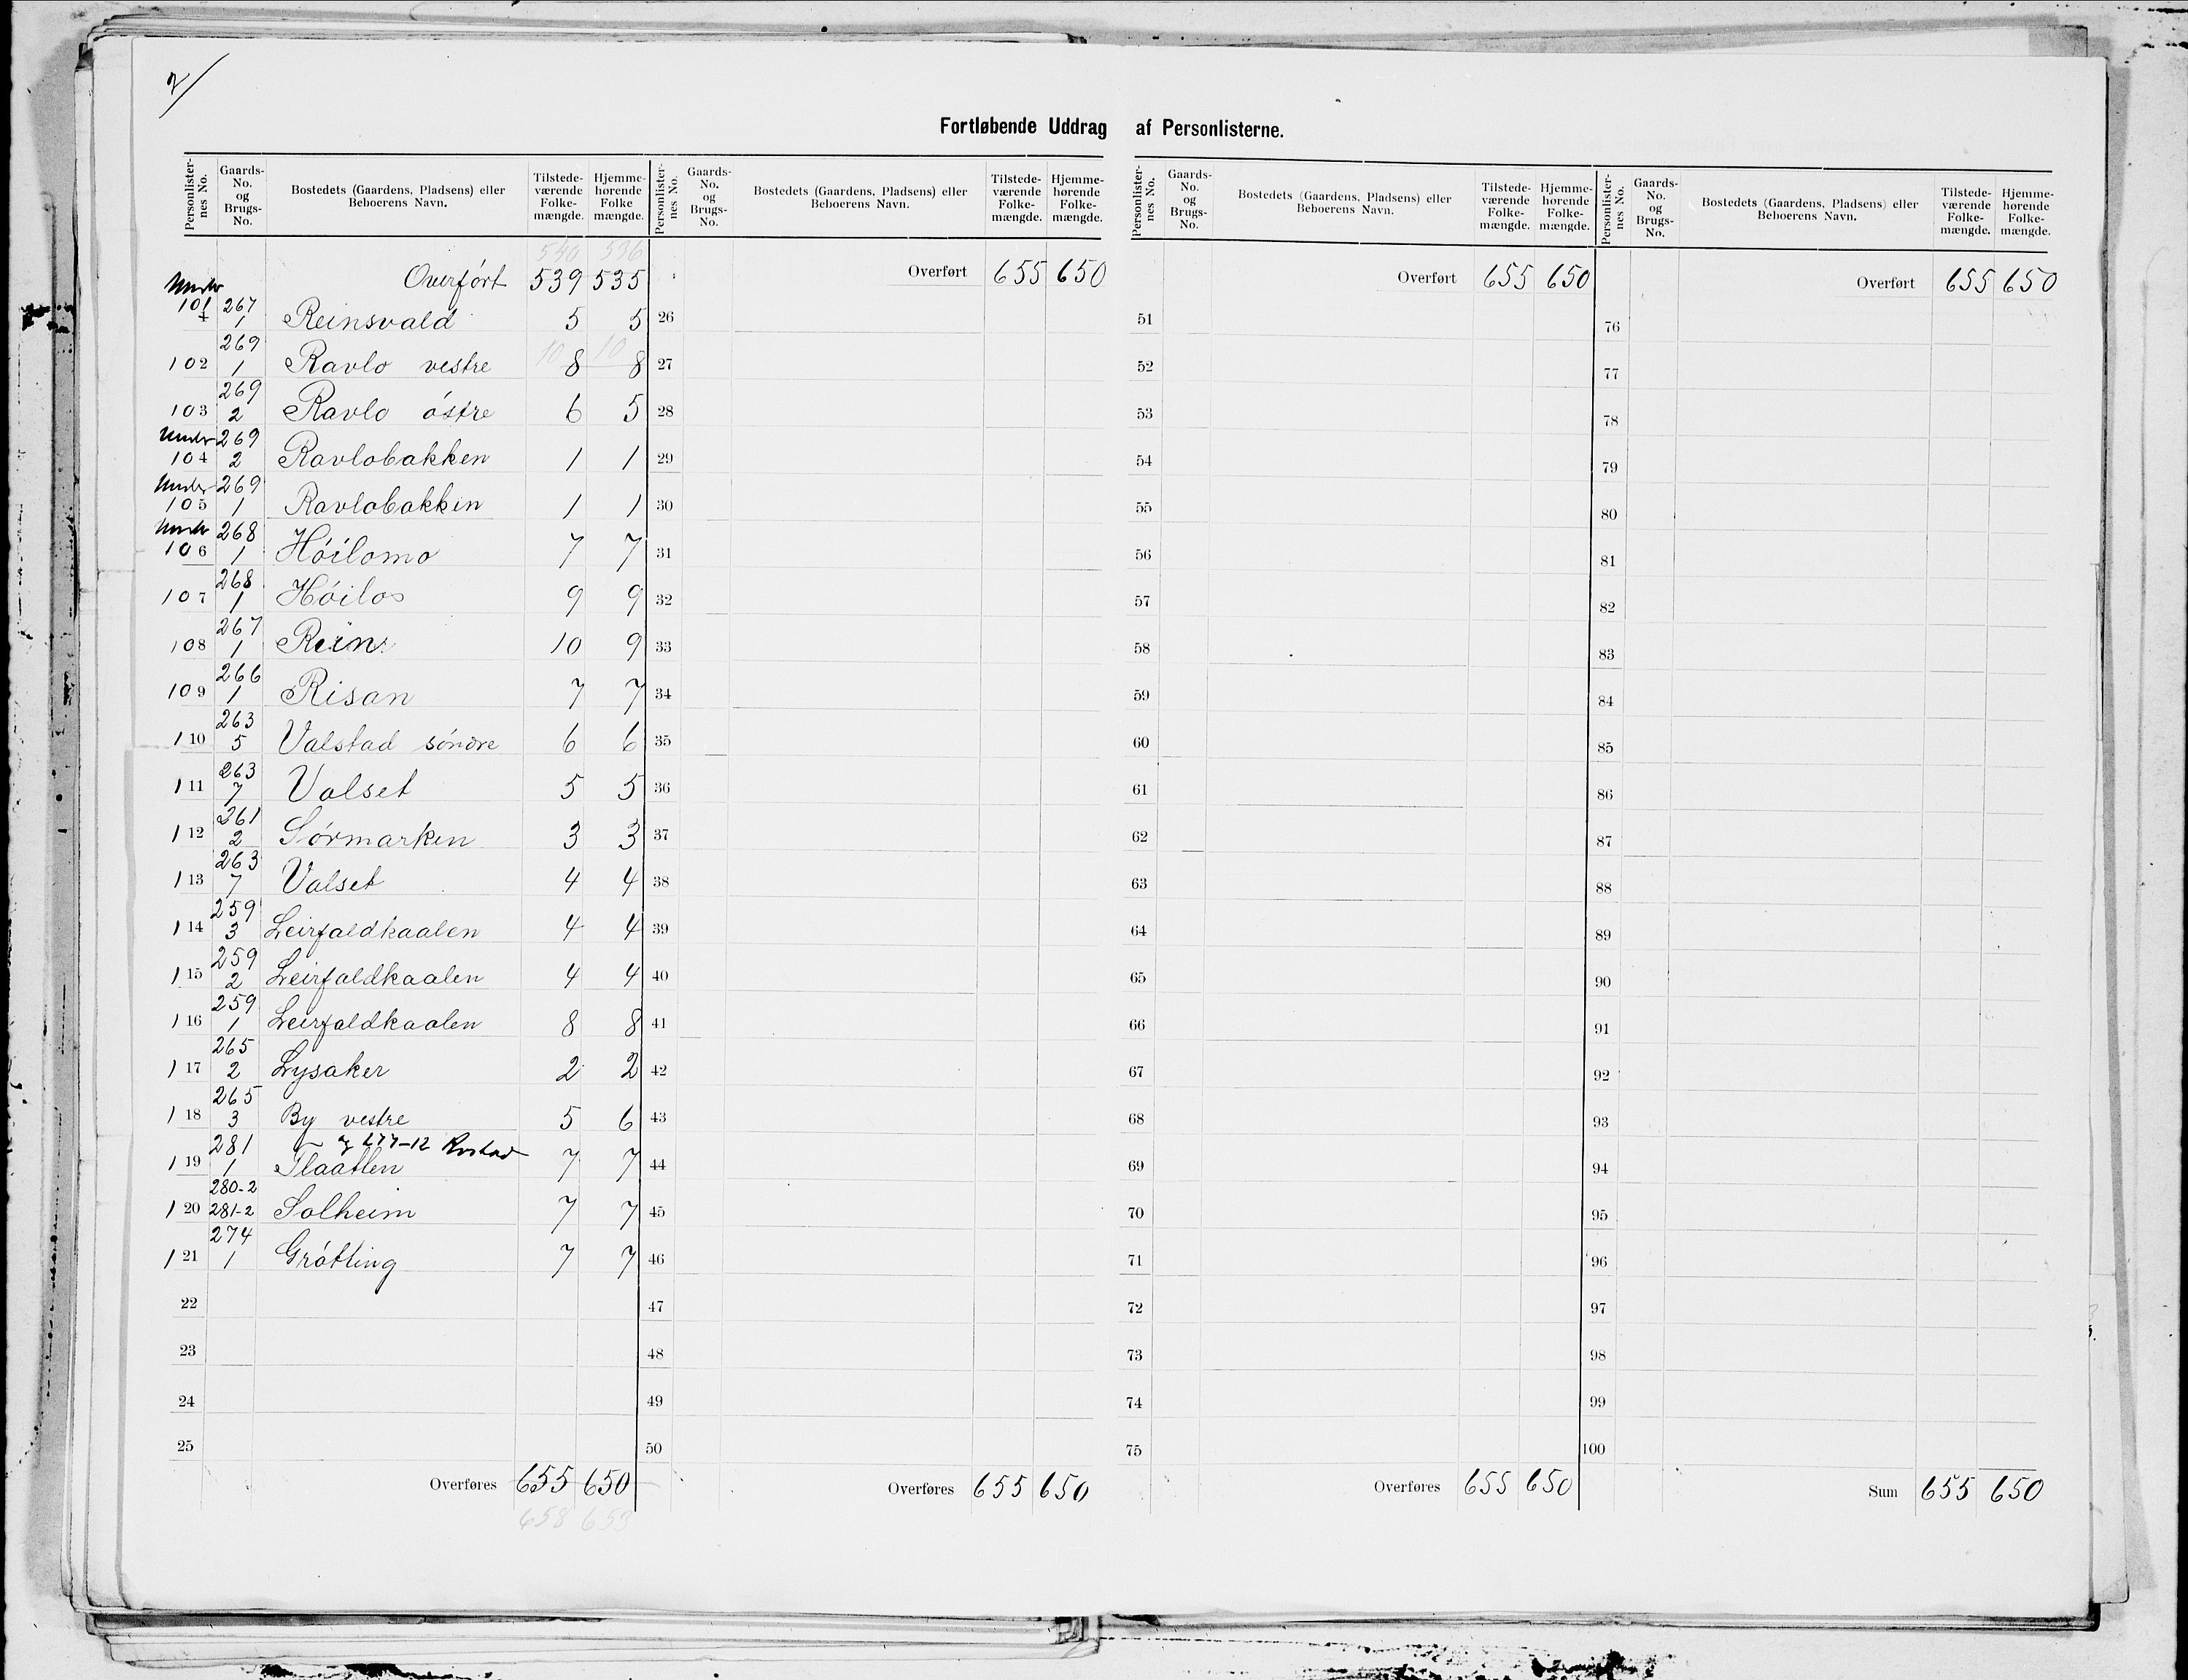 2/
Fortløbende Uddrag af Personlisterne.
Personlister-nes No. Gaards-No. og Brugs-No. Bostedets (Gaardens, Pladsens) eller Beboerens Navn. Tilstede-værende Folke-mængde. Hjemme-hørende Folke mængde.
540 536
Overført 539 535
Under 101 267 1 Reinsvald 5 5
102 269 1 Ravlo vestre 10 8 10 8
103 269 2 Ravlo östre 6 5
Under 104 269 2 Ravlobakken 1 1
Under 105 269 1 Ravlobakken 1 1
Under 106 268 1 Höilomo 7 7
107 268 1 Höilos 9 9
108 267 1 Rein 10 9
109 266 1 Risan 7 7
110 263 5 Valstad söndre 6 6
111 263 7 Valset 5 5
112 261 2 Sörmarken 3 3
113 263 7 Valset 4 4
114 259 3 Leirfaldkaalen 4 4
115 259 2 Leirfaldkaalen 4 4
116 259 1 Leirfaldkaalen 8 8
117 265 2 Lysaker 2 2
118 265 3 By vestre 5 6
277-12
119 281 1 Flaatten 7 7
120 280-2 281-2 Solheim 7 7
121 274 1 Grötting 7 7
22
23
24
25
Overføres 655 650
658 653
Personlister-nes No. Gaards-No. og Brugs-No. Bostedets (Gaardens, Pladsens) eller Beboerens Navn. Tilstede-værende Folke-mængde. Hjemme-hørende Folke-mængde.
Overført 655 650
26
27
28
29
30
31
32
33
34
35
36
37
38
39
40
41
42
43
44
45
46
47
48
49
50
Overføres 655 650
Personlister-nes No. Gaards-No. og Brugs-No. Bostedets (Gaardens, Pladsens) eller Beboerens Navn. Tilstede-værende Folke-mængde. Hjemme-hørende Folke-mængde.
Overført 655 650
51
52
53
54
55
56
57
58
59
60
61
62
63
64
65
66
67
68
69
70
71
72
73
74
75
Overføres 655 650
Personlister-nes No. Gaards-No. og Brugs-No. Bostedets (Gaardens, Pladsens) eller Beboerens Navn. Tilstede-værende Folke-mængde. Hjemme-hørende Folke-mængde.
Overført 655 650
76
77
78
79
80
81
82
83
84
85
86
87
88
89
90
91
92
93
94
95
96
97
98
99
100
Sum 655 650